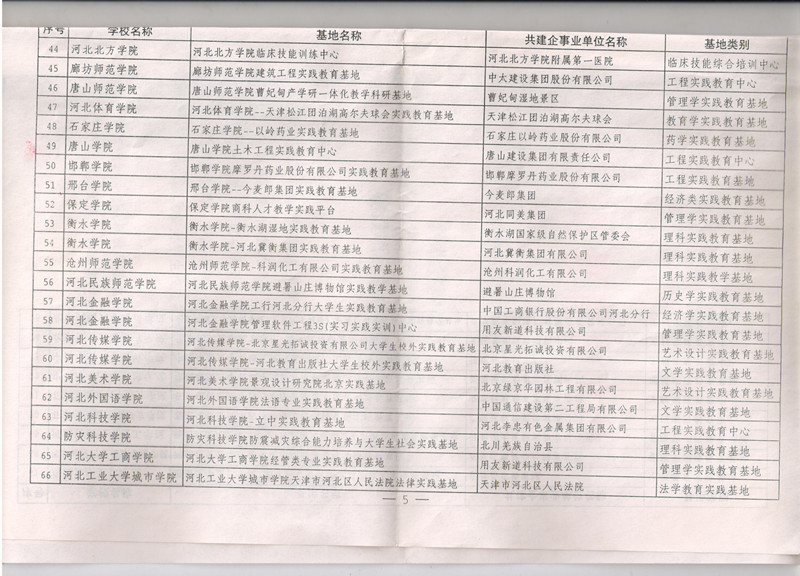 序号 学校名称 基地名称 共建企事业单位名称 基地类别
44 河北北方学院 河北北方学院临床技能训练中心 河北北方学院附属第一医院 临床技能综合培训中心
45 廊坊师范学院 廊坊师范学院建筑工程实践教育基地 中太建设集团股份有限公司 工程实践教育中心
46 唐山师范学院 唐山师范学院曹妃甸产学研一体化教学科研基地 曹妃甸湿地景区 管理学实践教育基地
47 河北体育学院 河北体育学院--天津松江团泊湖高尔夫球会实践教育基地 天津松江团泊湖高尔夫球会 教育学实践教育基地
48 石家庄学院 石家庄学院--以岭药业实践教育基地 石家庄以岭药业股份有限公司 药学实践教育基地
49 唐山学院 唐山学院土木工程实践教育中心 唐山建设集团有限责任公司 工程实践教育中心
50 邯郸学院 邯郸学院摩罗丹药业股份有限公司实践教育基地 邯郸摩罗丹药业股份有限公司 工程实践教育基地
51 邢台学院 邢台学院--今麦郎集团实践教育基地 今麦郎集团 经济类实践教育基地
52 保定学院 保定学院商科人才教学实践平台 河北同美集团 管理学实践教育基地
53 衡水学院 衡水学院-衡水湖湿地实践教育基地 衡水湖国家级自然保护区管委会 理科实践教育基地
54 衡水学院 衡水学院-河北冀衡集团实践教育基地 河北冀衡集团有限公司 理科实践教育基地
55 沧州师范学院 沧州师范学院-科润化工有限公司实践教育基地 沧州科润化工有限公司 理科实践教学基地
56 河北民族师范学院 河北民族师范学院避暑山庄博物馆实践教学基地 避暑山庄博物馆 历史学实践教育基地
57 河北金融学院 河北金融学院工行河北分行大学生实践教育基地 中国工商银行股份有限公司河北分行 经济学实践教育基地
58 河北金融学院 河北金融学院管理软件工程3S(实习实践实训)中心 用友新道科技有限公司 管理学实践教育基地
59 河北传媒学院 河北传媒学院-北京星光拓诚投资有限公司大学生校外实践教育基地 北京星光拓诚投资有限公司 艺术设计实践教育基地
60 河北传媒学院 河北传媒学院-河北教育出版社大学生校外实践教育基地 河北教育出版社 文学实践教育基地
61 河北美术学院 河北美术学院景观设计研究院北京实践基地 北京绿京华园林工程有限公司 艺术设计实践教育基地
62 河北外国语学院 河北外国语学院法语专业实践教育基地 中国通信建设第二工程局有限公司 文学实践教育基地
63 河北科技学院 河北科技学院-立中实践教育基地 河北李忠有色金属集团有限公司 工程实践教育中心
64 防灾科技学院 防灾科技学院防震减灾综合能力培养与大学生社会实践基地 北川羌族自治县 理科实践教育基地
65 河北大学工商学院 河北大学工商学院经管类专业实践教育基地 用友新道科技有限公司 管理学实践教育基地
66 河北工业大学城市学院 河北工业大学城市学院天津市河北区人民法院法律实践基地 天津市河北区人民法院 法学教育实践基地
— 5 —